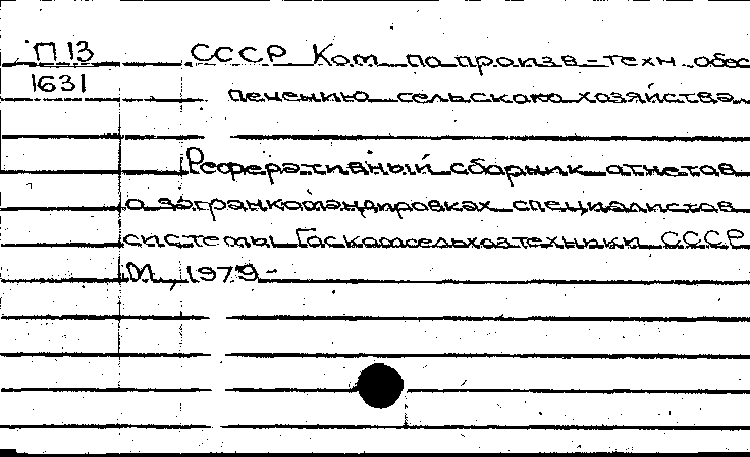 П 13 СССР Ком. по произв.-техн. обес
1631 печению сельского хозяйства.
Реферативный сборник отчетов
о загранкомандировках специалистов
системы Госкомсельхозтехники СССР
М., 1979-